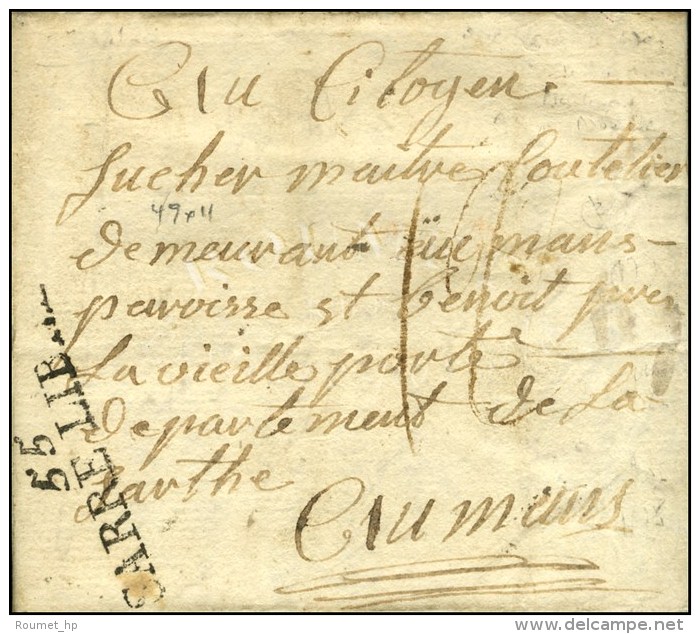 Au Citoyen
Sucher maitre Coutelier
49x11
demeurant au mans
paroisse st benoit pres
La vieille porte
departement de La
Sarthe
Au mans
55
SARRE LIB...
Roumet_hp
delcampe.net